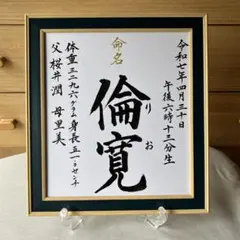 令和七年四月三十日
午後六時十三分生
命名
倫寛
りお
体重三二九六グラム身長五一・〇センチ
父桜井潤 母里美